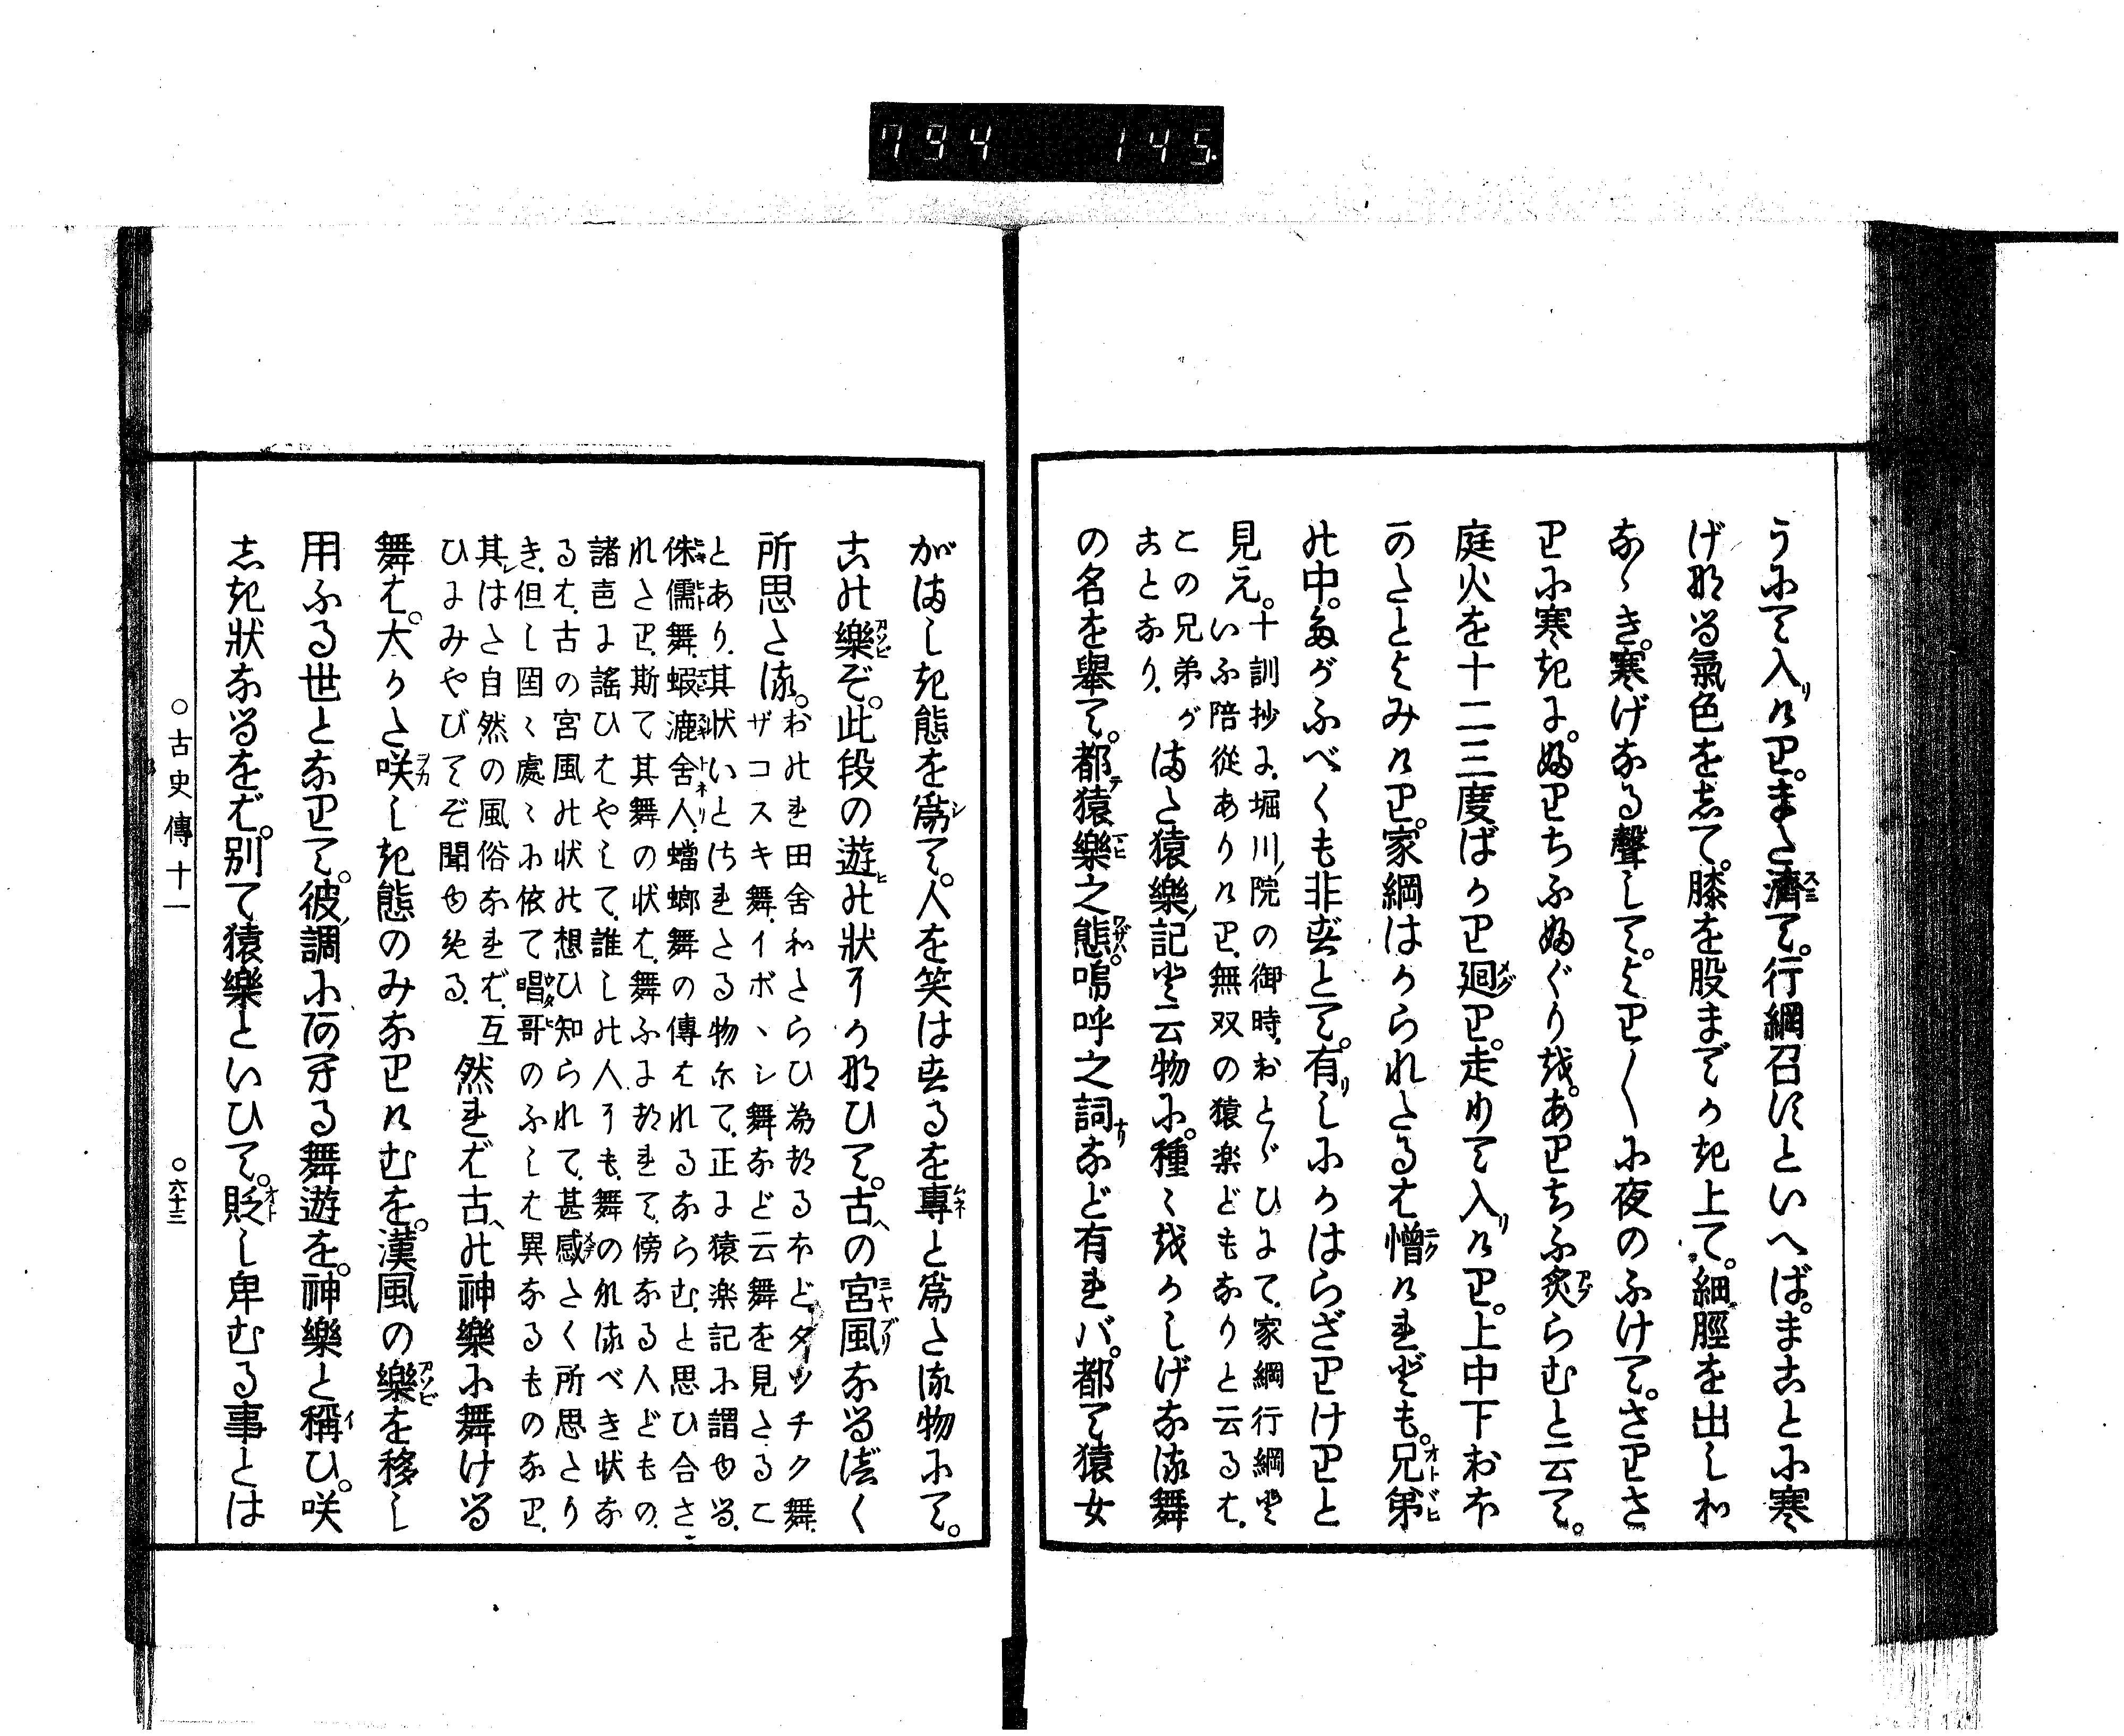 うにて入りけり。また濟て。行綱召すといへば。まことに寒
げなる氣色をして。膝を股までかき上て。細脛を出しわ
なゝき。寒げなる聲して。より〳〵に夜のふけて。さりさ
りに寒きに。ふりちふふぐりを。ありちふ炙らむと云て。
庭火を十二三度ばかり廻り。走りて入りけり。上中下おほ
かたとよみけり。家綱はかられたるは憎けれども。兄弟
の中。たがふべくも非ずとて。有りしにかはらざりけりと
見え。十訓抄に、堀川ノ院の御時、おとゞひにて、家綱行綱と
いふ陪從ありけり、無双の猿楽どもなりと云るは、
この兄弟が
ことなり、また猿樂記と云物に。種々をかしげなる舞
の名を舉て。都猿樂之態。嗚呼之詞など有れバ。都て猿女
がましき態を爲て。人を笑はするを專と爲たる物にて。
この樂ぞ。此段の遊の狀にかなひて。古の宮風なるべく
所思たる。おのれ田舍わたらひ爲けるほどタツチク舞、
ザコスキ舞、イボヽシ舞など云舞を見たるこ
とあり、其状いとほれたる物にて、正に猿楽記に謂ゆる、
侏儒舞、蝦漉舍人、蟷螂舞の傳はれるならむ、と思ひ合さ
れたり、斯て其舞の状は、舞ふにつれて、傍なる人どもの、
諸声に謠ひはやして、誰しの人にも、舞のれるべき状な
るは、古の宮風の状の想ひ知られて、甚感たく所思たり
き、但し国々處々に依て唱哥のふしは異なるものなり、
其はた自然の風俗なれば、互
ひにみやびてぞ聞ゆめる、然れば古への神樂に舞ける
舞は。大かた咲しき態のみなりけむを。漢風の樂を移し
用ふる世となりて。彼ノ調にあはする舞遊を。神樂と稱ひ。咲
しき狀なるをば。別て猿樂といひて。貶し卑むる事とは
○古史傳十一 ○六十三
794 145